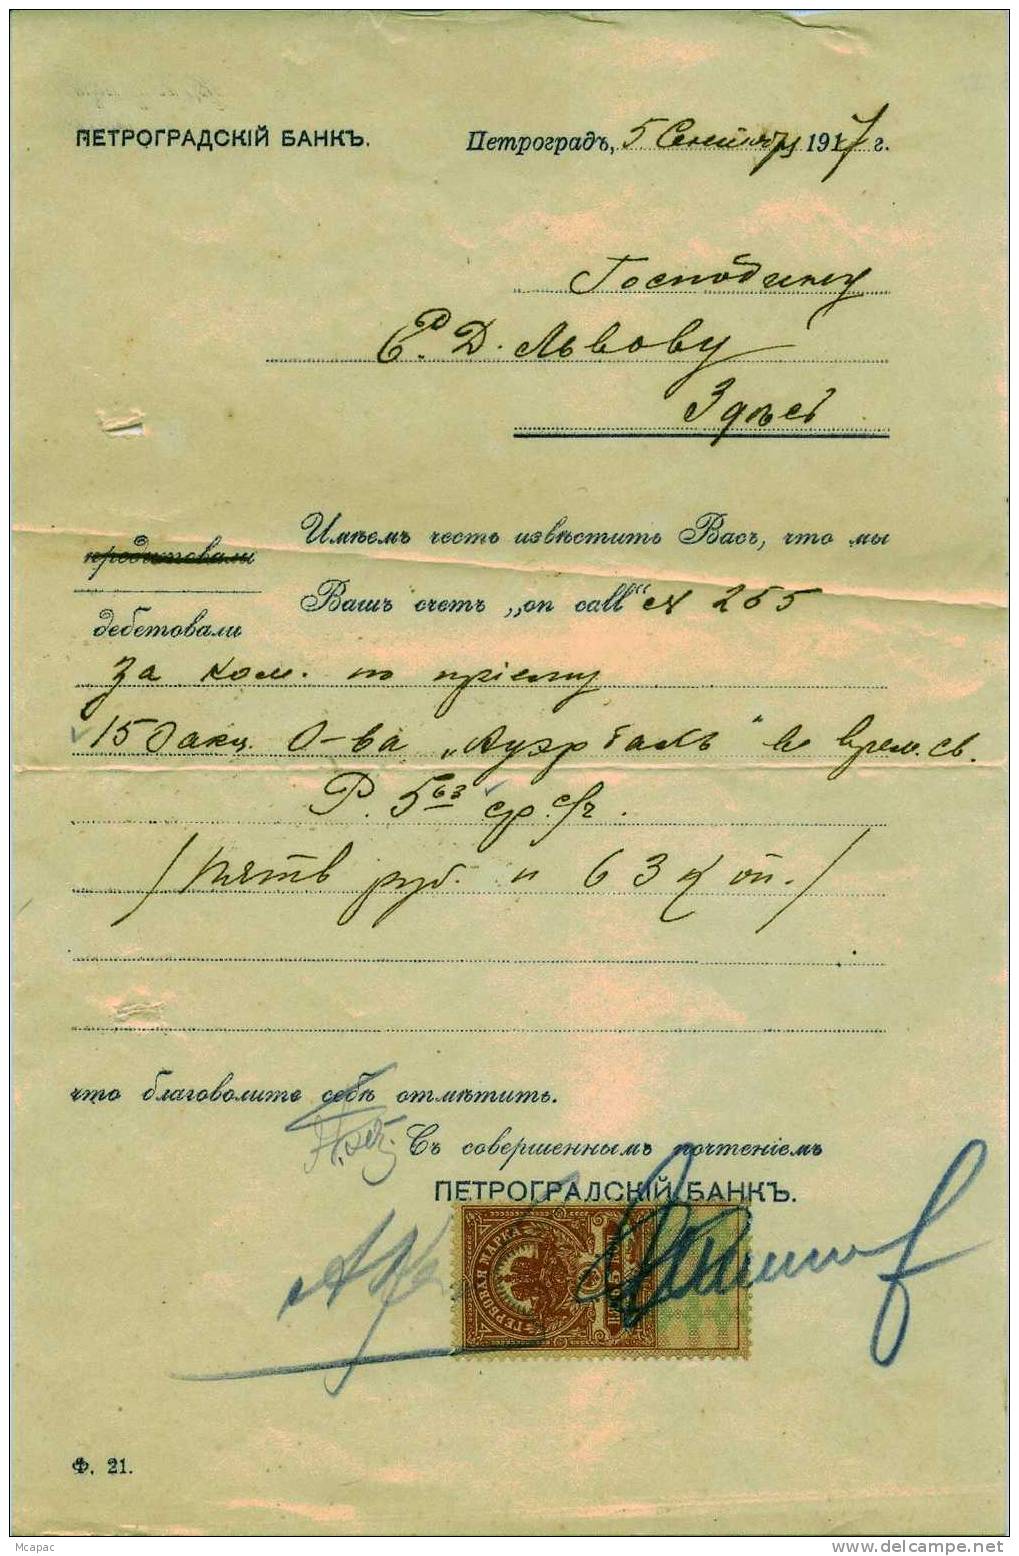 ПЕТРОГРАДСКІЙ БАНКЪ.
Петроградъ, 5 Сентября 1917 г.
Господину
Р. Д. Львову
Здѣсь
Имѣемъ честь извѣстить Васъ, что мы
кредитовали
дебетовали
Вашъ счетъ „on call“ № 255
За ком. по пріему
150 акц. О-ва „Ауэрбахъ“ в врем. св.
Р. 5 63 ср. сч.
/Пять руб. и 63 коп./
что благоволите себѣ отмѣтить.
Съ совершеннымъ почтеніемъ
ПЕТРОГРАДСКІЙ БАНКЪ.
ГЕРБОВАЯ МАРКА
Ф. 21.
Mcapac
delcampe.net